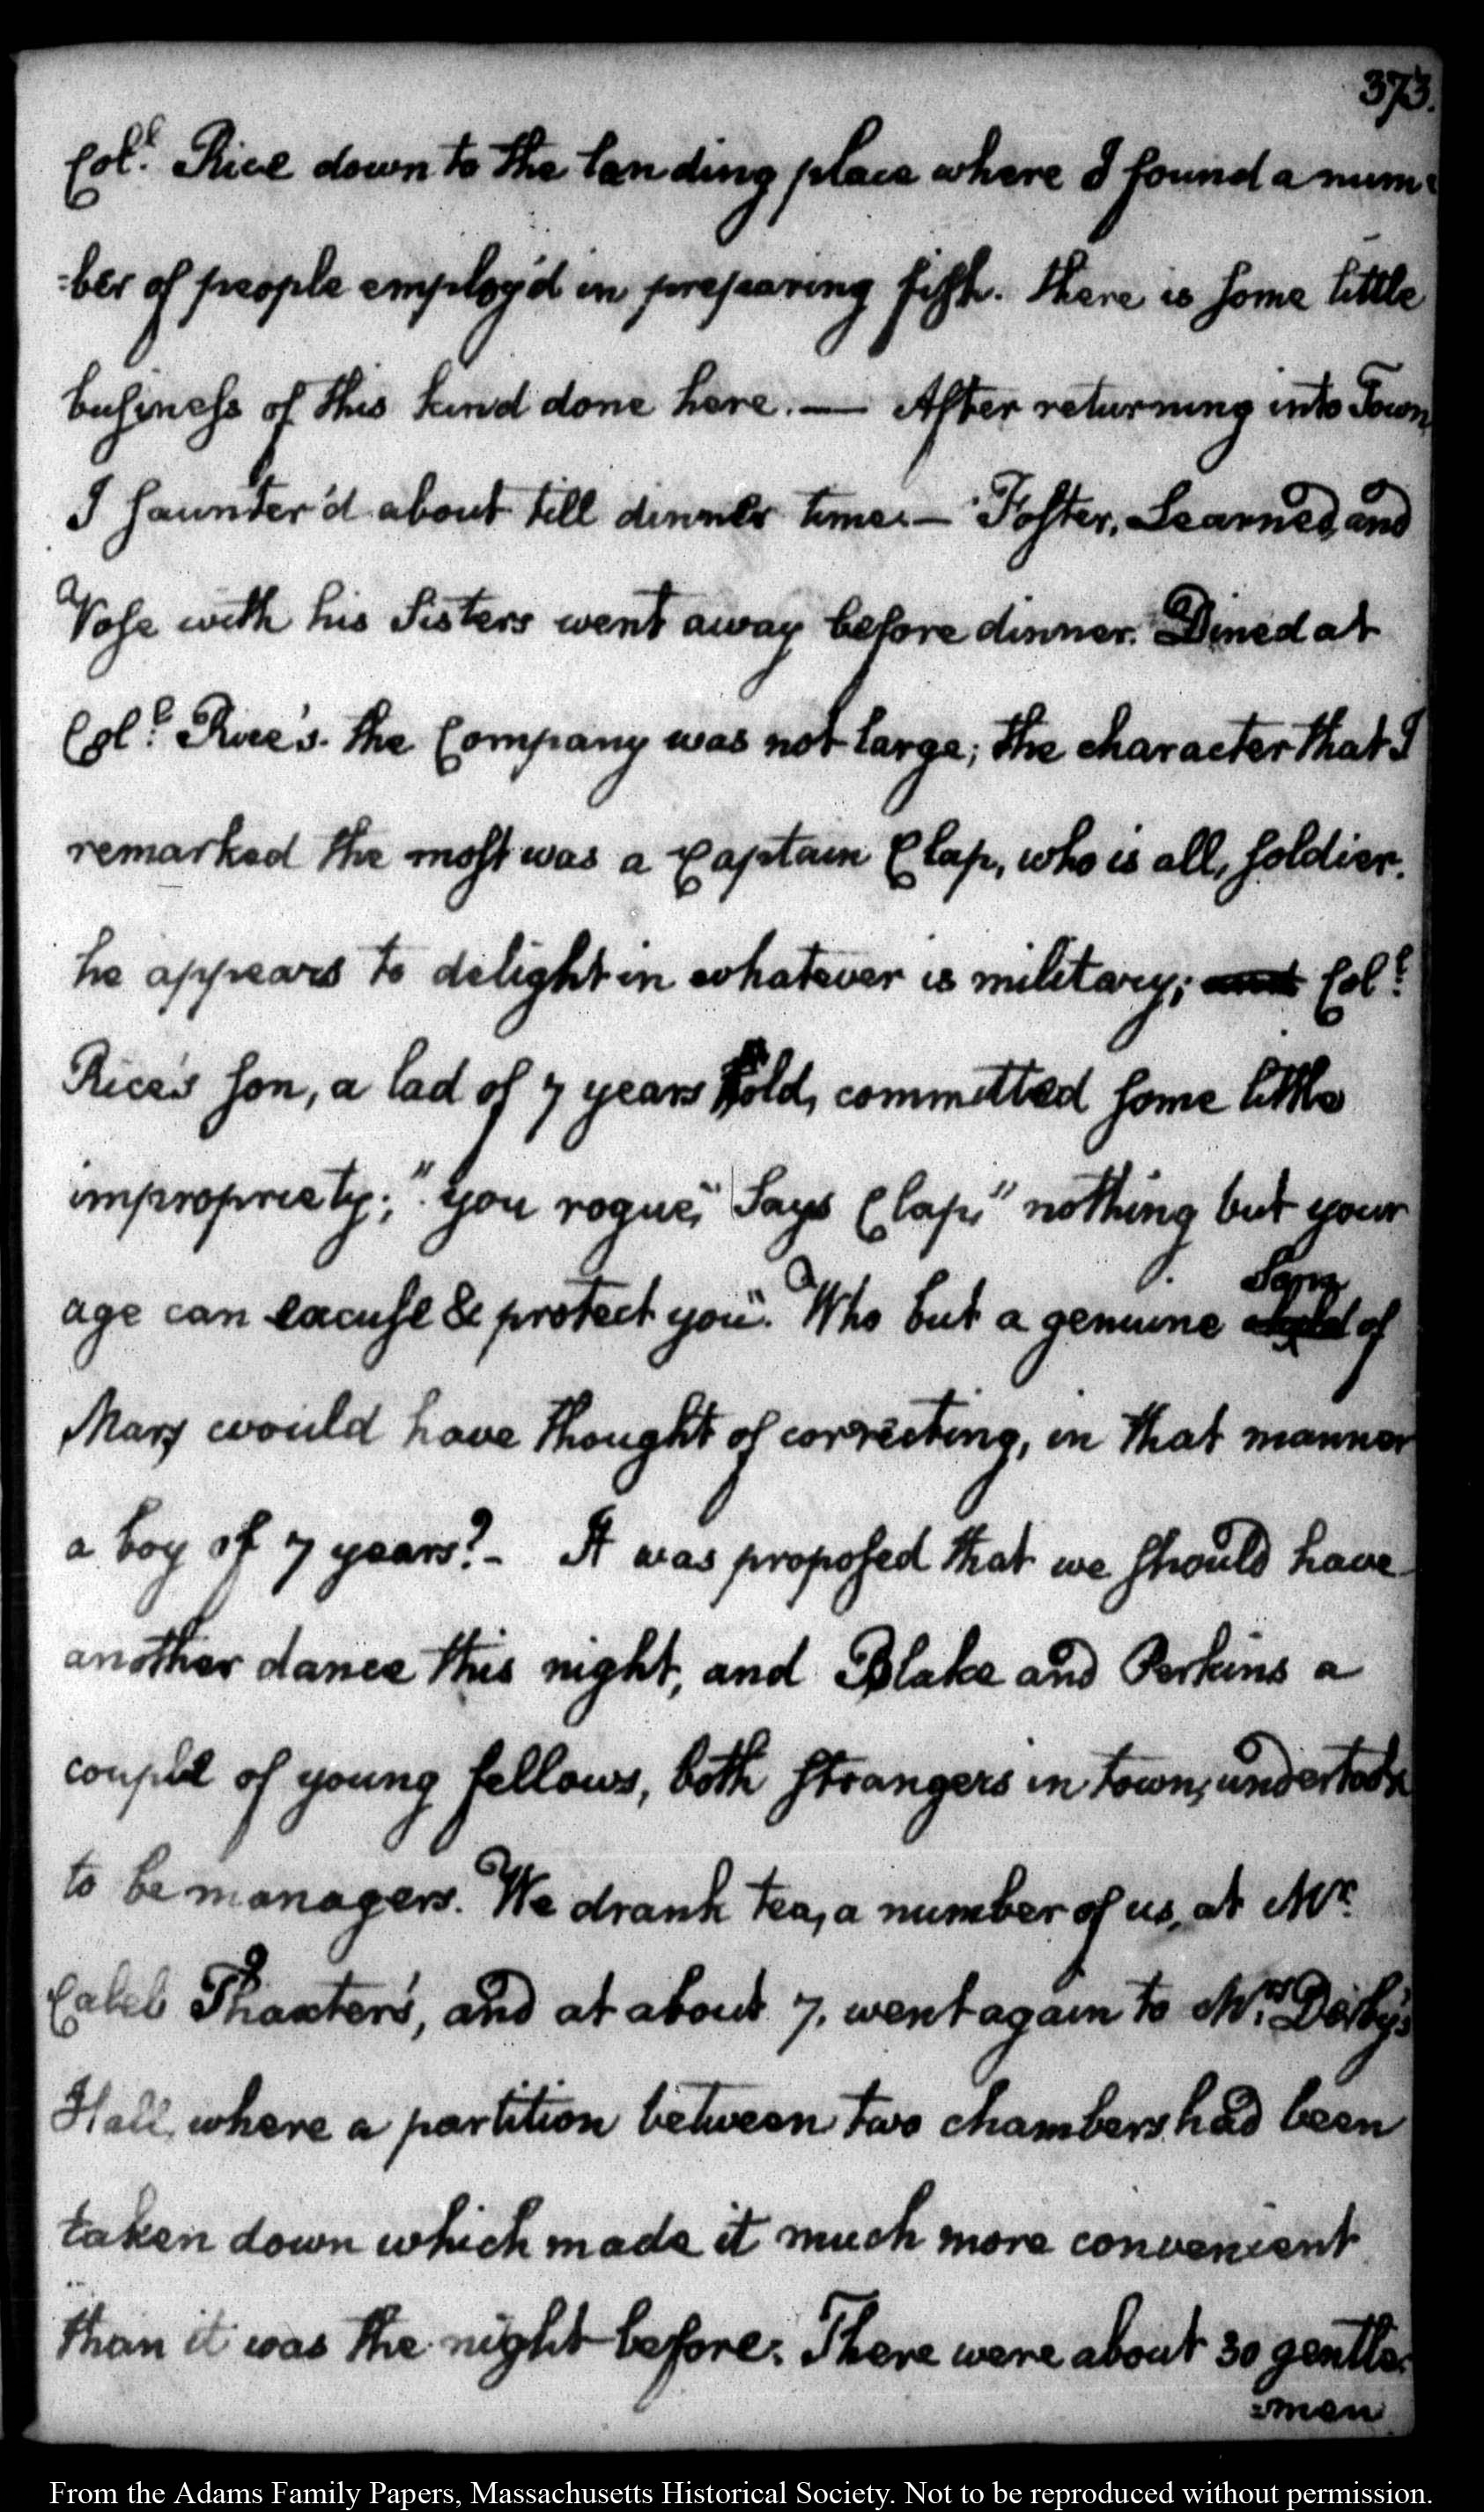 373.
Col.l Rice down to the landing place where I found a num=
=ber of people employ'd in preparing fish. there is some little
business of this kind done here. — After returning into Town
I saunter'd about till dinner time. — Foster, Learned, and
Vose with his Sisters went away before dinner. Dined at
Col.l Rice's. the Company was not large; the character that I
remarked the most was a Captain Clap, who is all, soldier.
he appears to delight in whatever is military; and Col.l
Rice's son, a lad of 7 years old, committed some little
impropriety; "you rogue," says Clap, "nothing but your
age can excuse & protect you". Who but a genuine Son
of
Mars would have thought of correcting, in that manner
a boy of 7 years? - It was proposed that we should have
another dance this night, and Blake and Perkins a
couple of young fellows, both strangers in town, undertook
to be managers. We drank tea, a number of us, at Mr.
Caleb Thaxter's, and at about 7, went again to Mrs. Derby's
Hall, where a partition between two chambers had been
taken down which made it much more convenient
than it was the night before. There were about 30 gentle=
=men
From the Adams Family Papers, Massachusetts Historical Society. Not to be reproduced without permission.